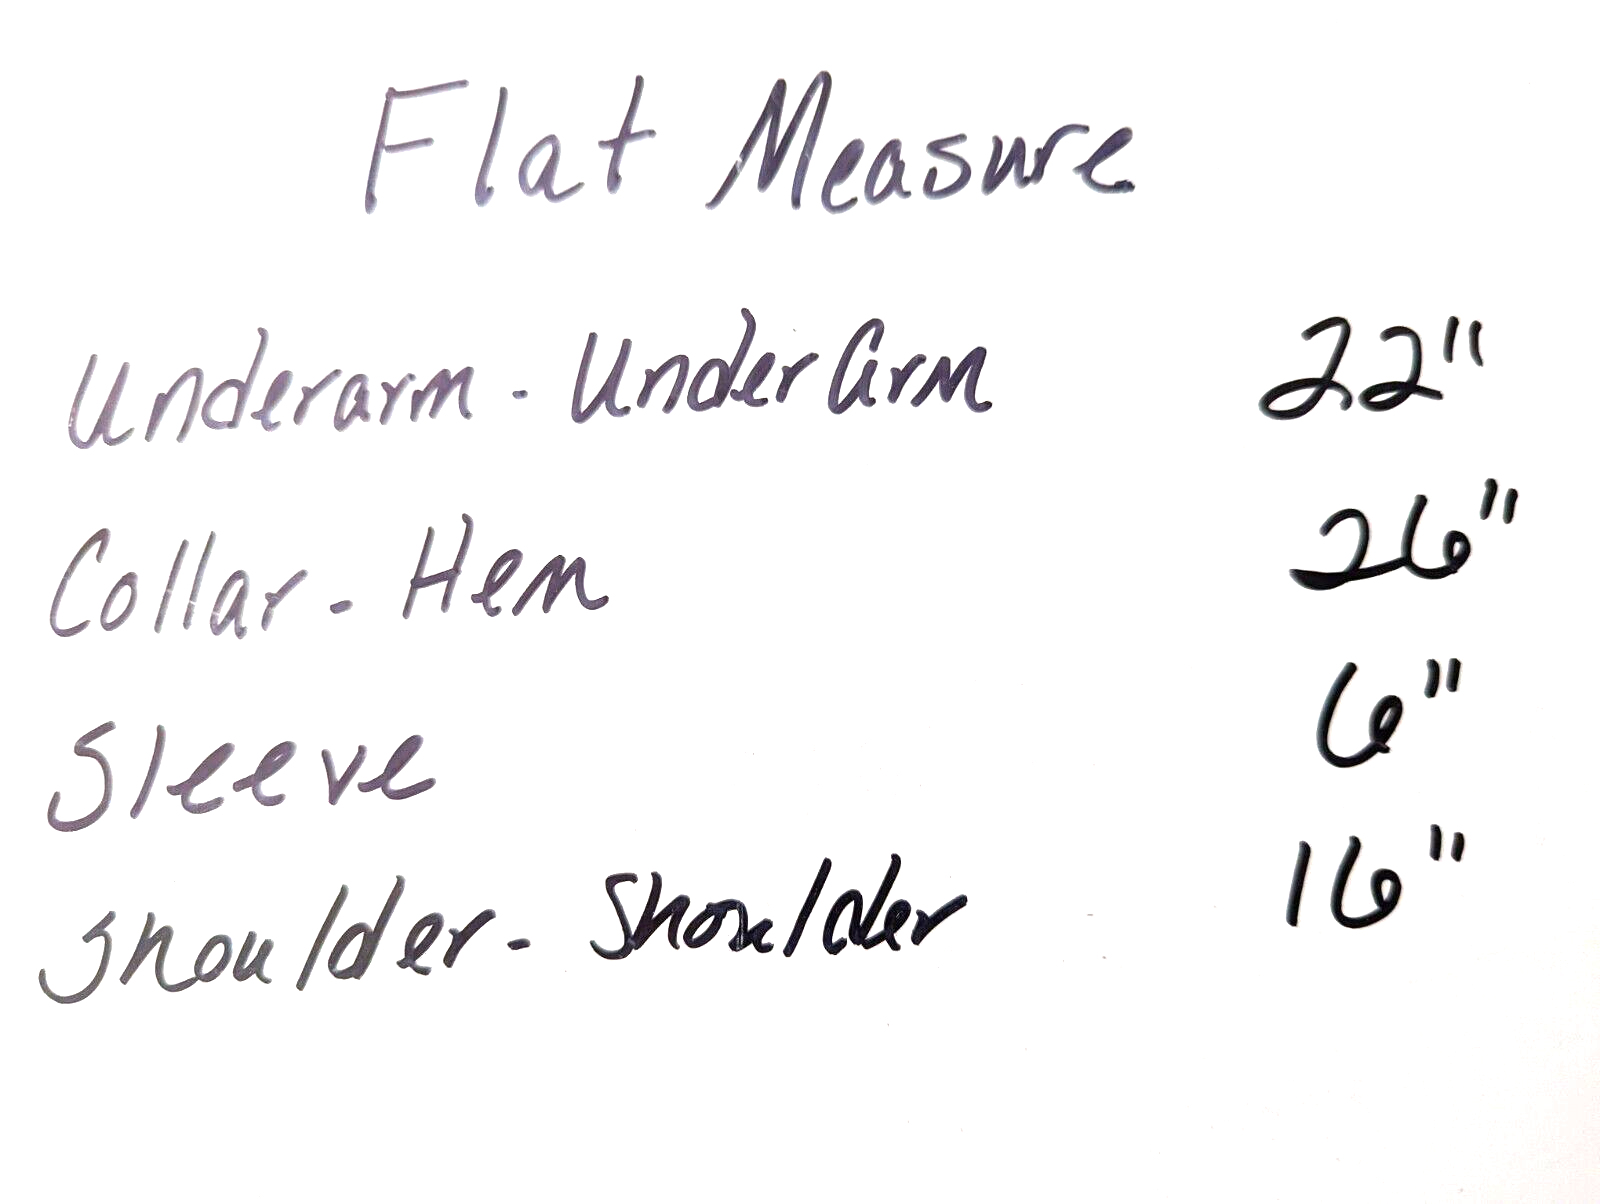 Flat Measure
Underarm - UnderArm 22"
Collar - Hem 26"
Sleeve 6"
Shoulder - Shoulder 16"